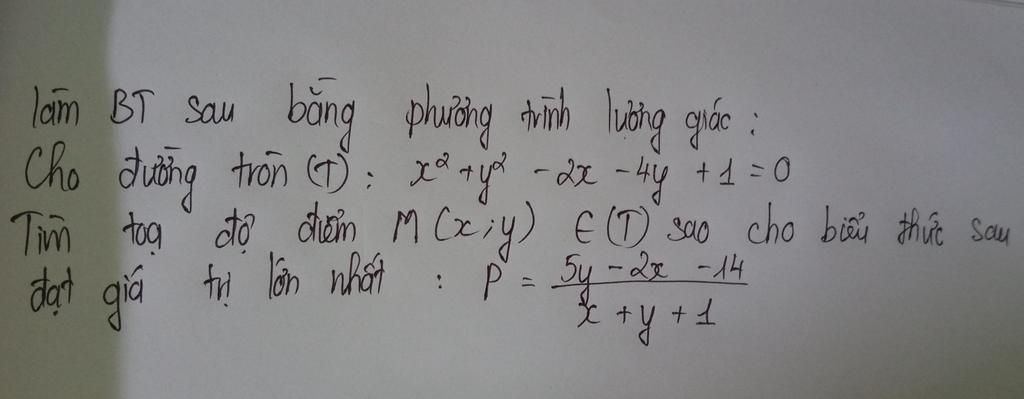 làm BT sau bằng phương trình lượng giác :
Cho đường tròn (T) : x² + y² - 2x - 4y + 1 = 0
Tìm toạ độ điểm M (x ; y) ∈ (T) sao cho biểu thức sau
đạt giá trị lớn nhất : P = (5y - 2x - 14) / (x + y + 1)